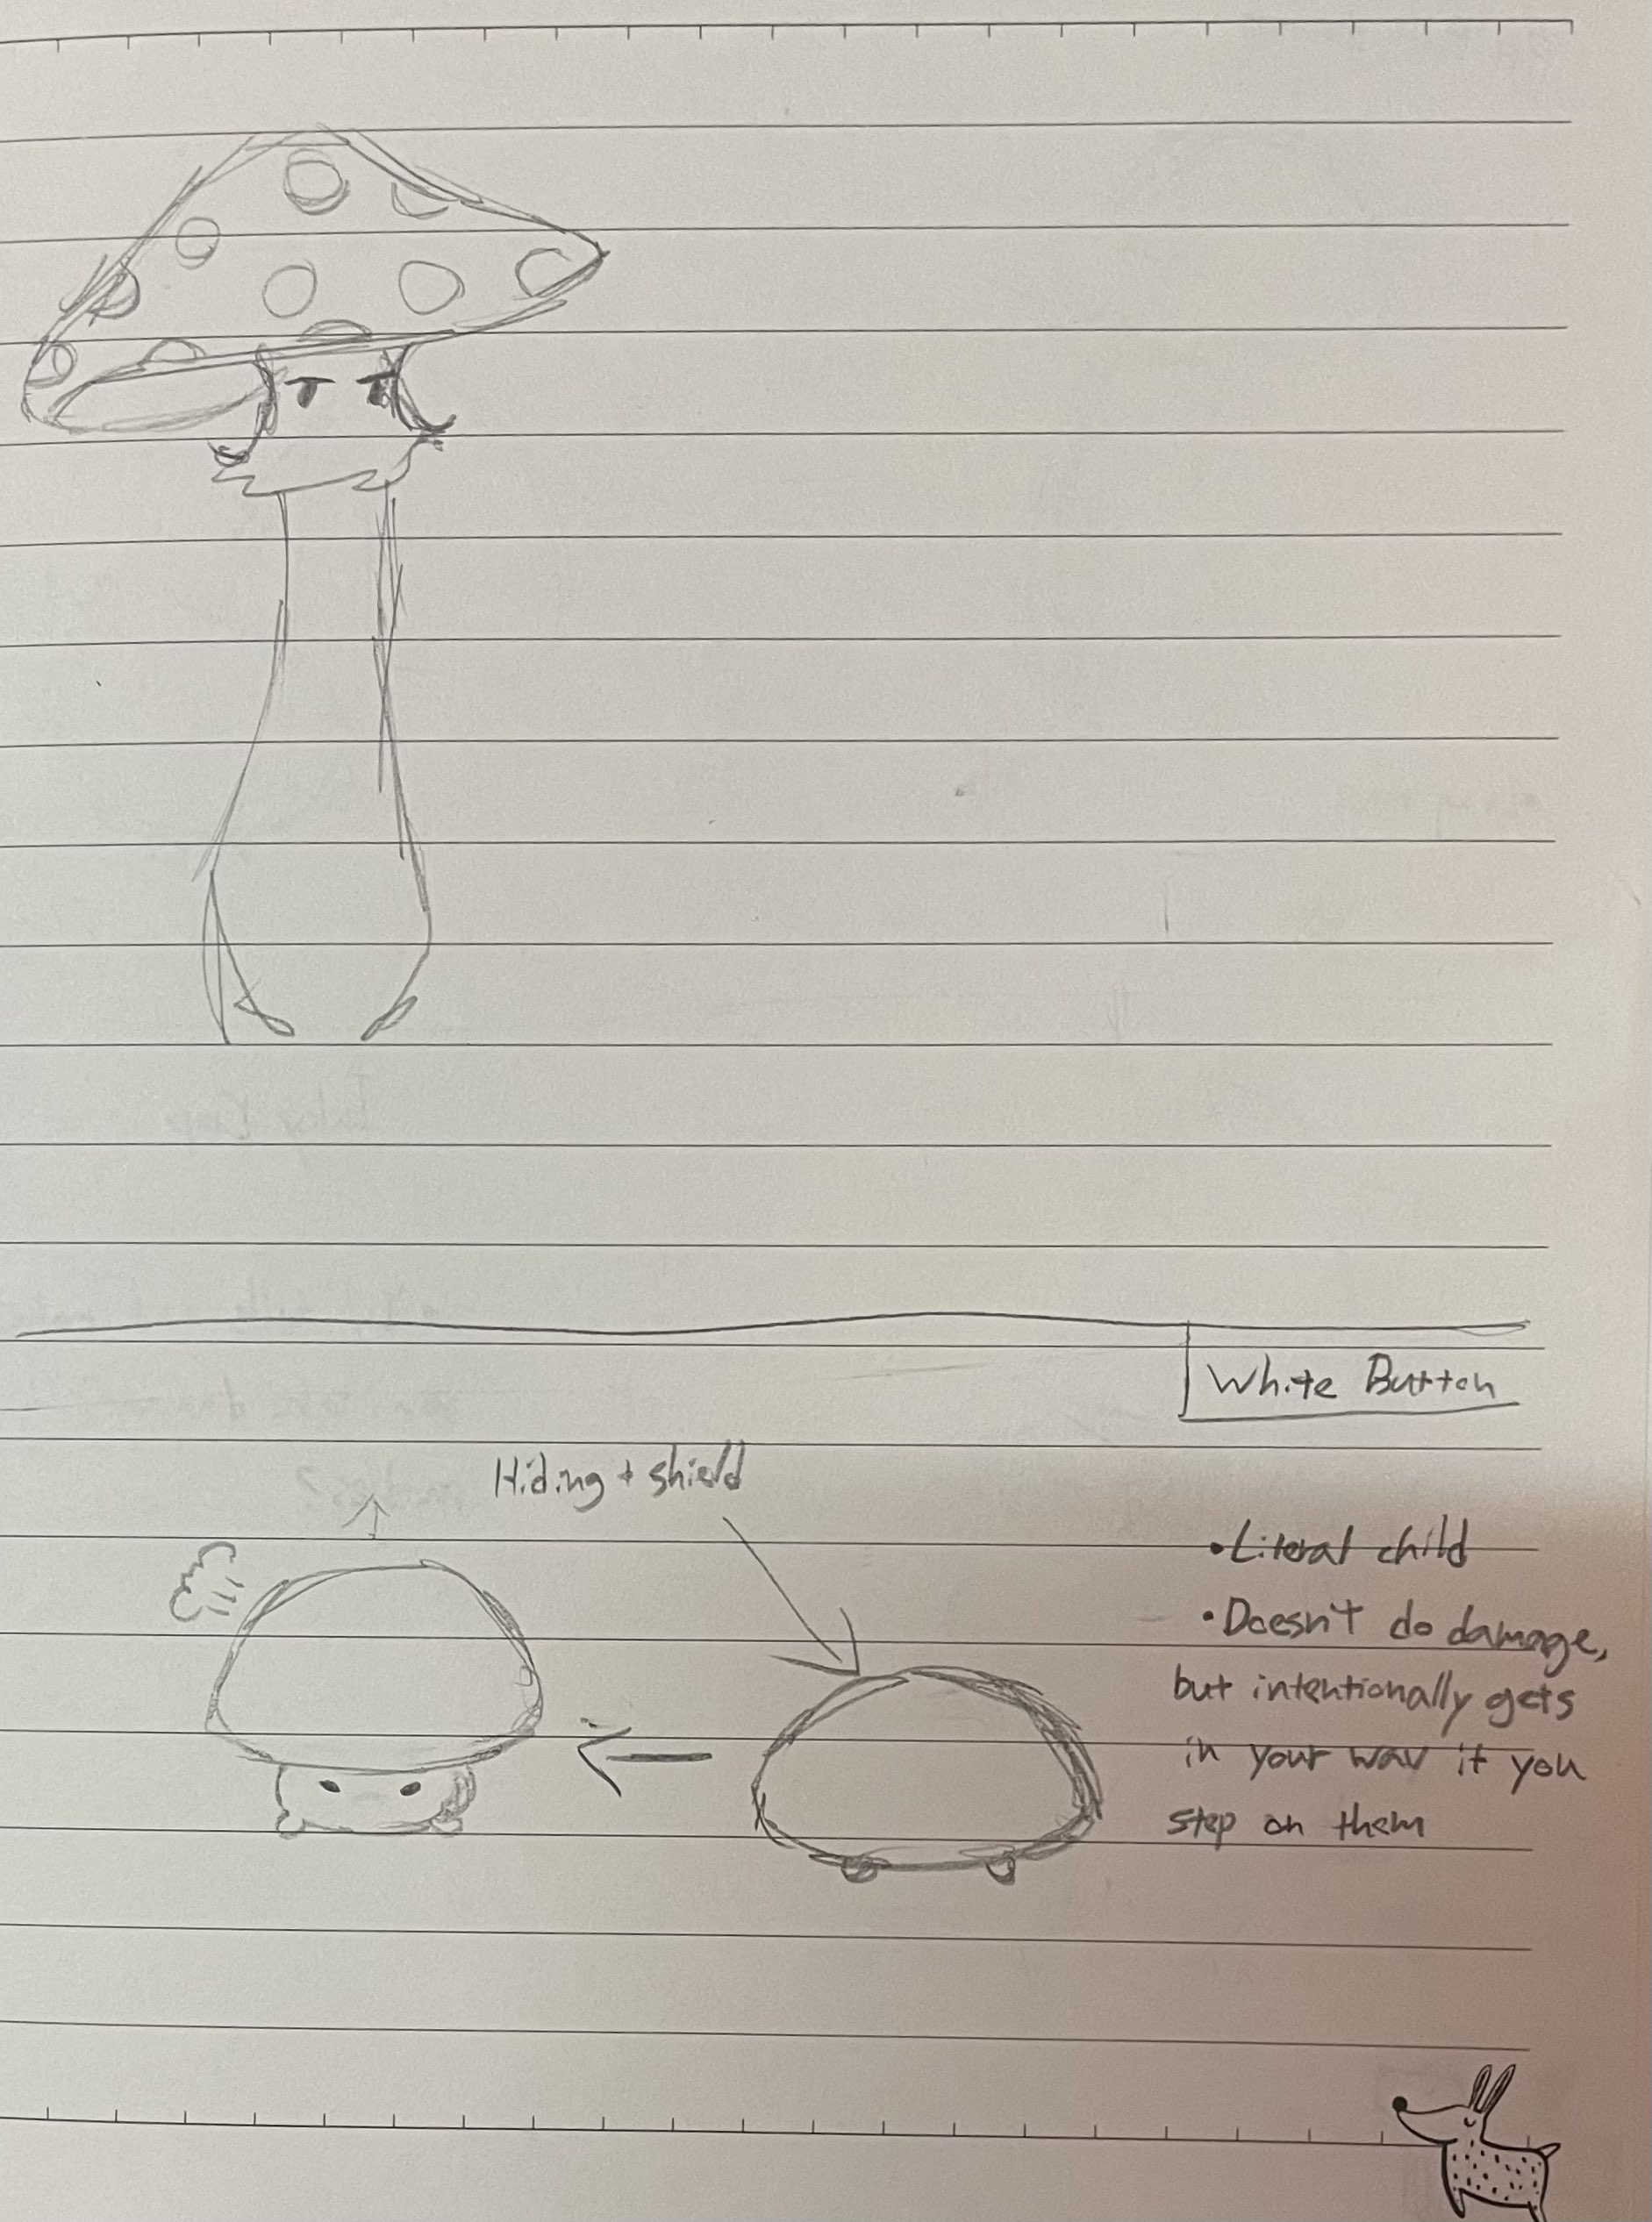 White Button
Hiding + shield
• Literal child
• Doesn't do damage,
but intentionally gets
in your way if you
step on them